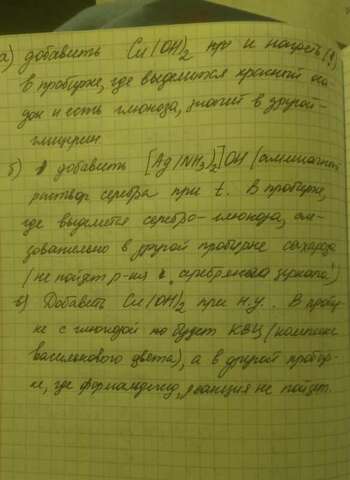 а) добавить Cu(OH)₂ при и нагреть (t)
в пробирке, где выделится красный оса-
док и есть глюкоза, значит в другой -
глицерин
б) добавить [Ag(NH₃)₂]OH (аммиачный
раствор серебра при t. В пробирке,
где выделится серебро - глюкоза, сле-
довательно в другой пробирке сахароза
(не пойдет р-ия серебряного зеркала)
в) Добавить Cu(OH)₂ при н.у.. В пробир-
ке с глюкозой то будет КВЦ (комплекс
василькового цвета), а в другой пробир-
ке, где формальдегид, реакция не пойдет.